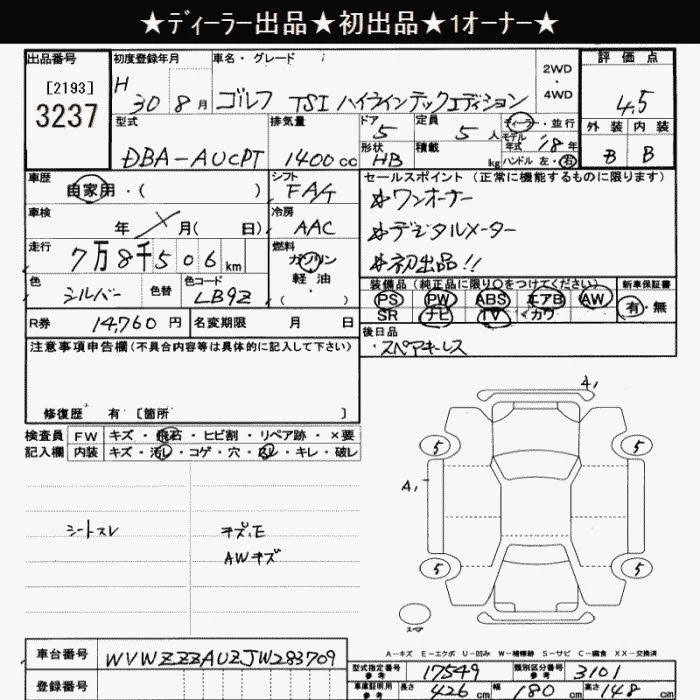 ★ディーラー出品★初出品★1オーナー★
出品番号
[2193]
3237
初度登録年月
H 30 8月
車名・グレード
ゴルフ TSI ハイラインテックエディション
2WD
・
4WD
評価点
4.5
外装 内装
B B
型式
DBA-AUCPT
排気量
1400cc
ドア
5
形状
HB
定員
5人
積載
kg
ディーラー・並行
モデル年式 18年
ハンドル 左・右
車歴
自家用・( )
シフト
FA/T
車検
年 月( 日)
冷房
AAC
走行
7万8千506km
燃料
ガソリン
・
軽油
・
( )
色
シルバー
色替
色コード
LB9Z
R券 14,760円
名変期限 月 日
セールスポイント(正常に機能するものに限ります)
☆ワンオーナー
☆デジタルメーター
☆初出品!!
装備品(純正品に限り○をつけてください)
PS PW ABS エアB AW
SR ナビ TV カワ
新車保証書
有・無
後日品
・スペアキーレス
注意事項申告欄(不具合内容等は具体的に記入して下さい)
修復歴 有[箇所 ]
検査員 FW キズ・飛石・ヒビ割・リペア跡・×要
記入欄 内装 キズ・汚レ・コゲ・穴・スレ・キレ・破レ
シートスレ
キズ、E
AWキズ
A,
5 5
A,
5 5
スペア
A-キズ E-エクボ U-凹み W-補修跡 S-サビ C-腐食 XX-交換済
車台番号 WVWZZZAUZJW283709
登録番号
型式指定番号参考 17549
類別区分番号参考 3101
車庫証明用参考 長さ 426cm 幅 180cm 高さ 148cm